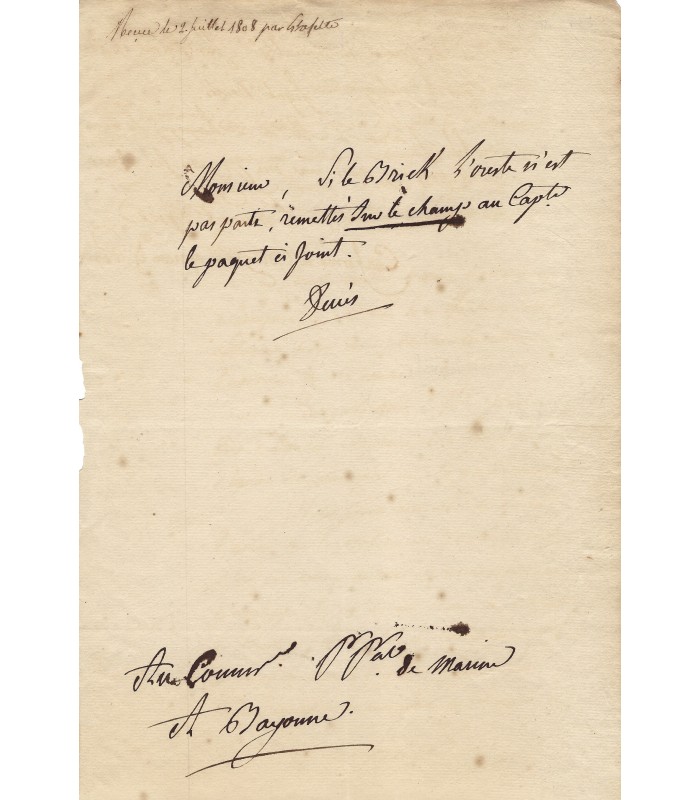 Reçue le 2 juillet 1808 par
Monsieur, Si le Brick L'oreste n'est
pas parti, remettés Sur le champ au Capt.e
le paquet ci Joint.
Decrès
Au Commre. Ppal de Marine
A Bayonne.